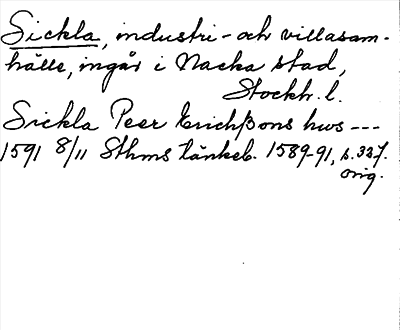 Sickla, industri- och villasam-
hälle, ingår i Nacka stad,
Stockh. l.
Sickla Peer Erichßons hws ---
1591 8/11 Sthms tänkeb. 1589-91, s. 337.
orig.